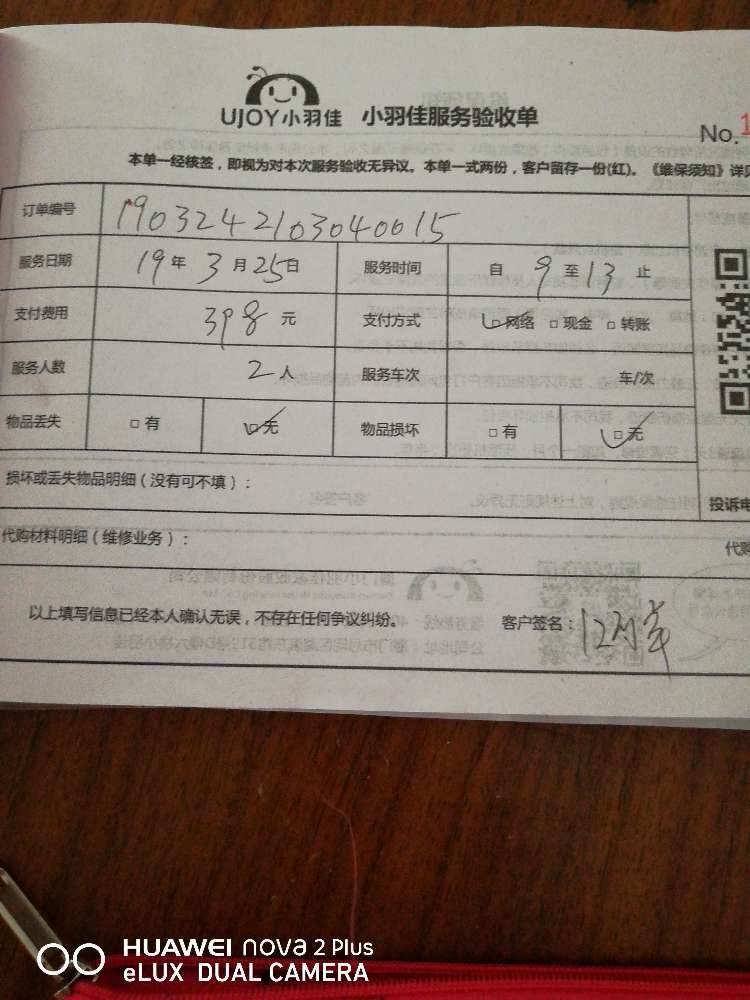 UJOY小羽佳 小羽佳服务验收单
No.1
本单一经核签，即视为对本次服务验收无异议。本单一式两份，客户留存一份(红)。《维保须知》详见
订单编号 1903242103040015
服务日期 19年3月25日 服务时间 自9至13止
支付费用 398元 支付方式 ☑网络 □现金 □转账
服务人数 2人 服务车次 车/次
物品丢失 □有 ☑无 物品损坏 □有 ☑无
损坏或丢失物品明细（没有可不填）：
投诉电
代购材料明细（维修业务）：
代购
以上填写信息已经本人确认无误，不存在任何争议纠纷。 客户签名：
HUAWEI nova 2 Plus
eLUX DUAL CAMERA